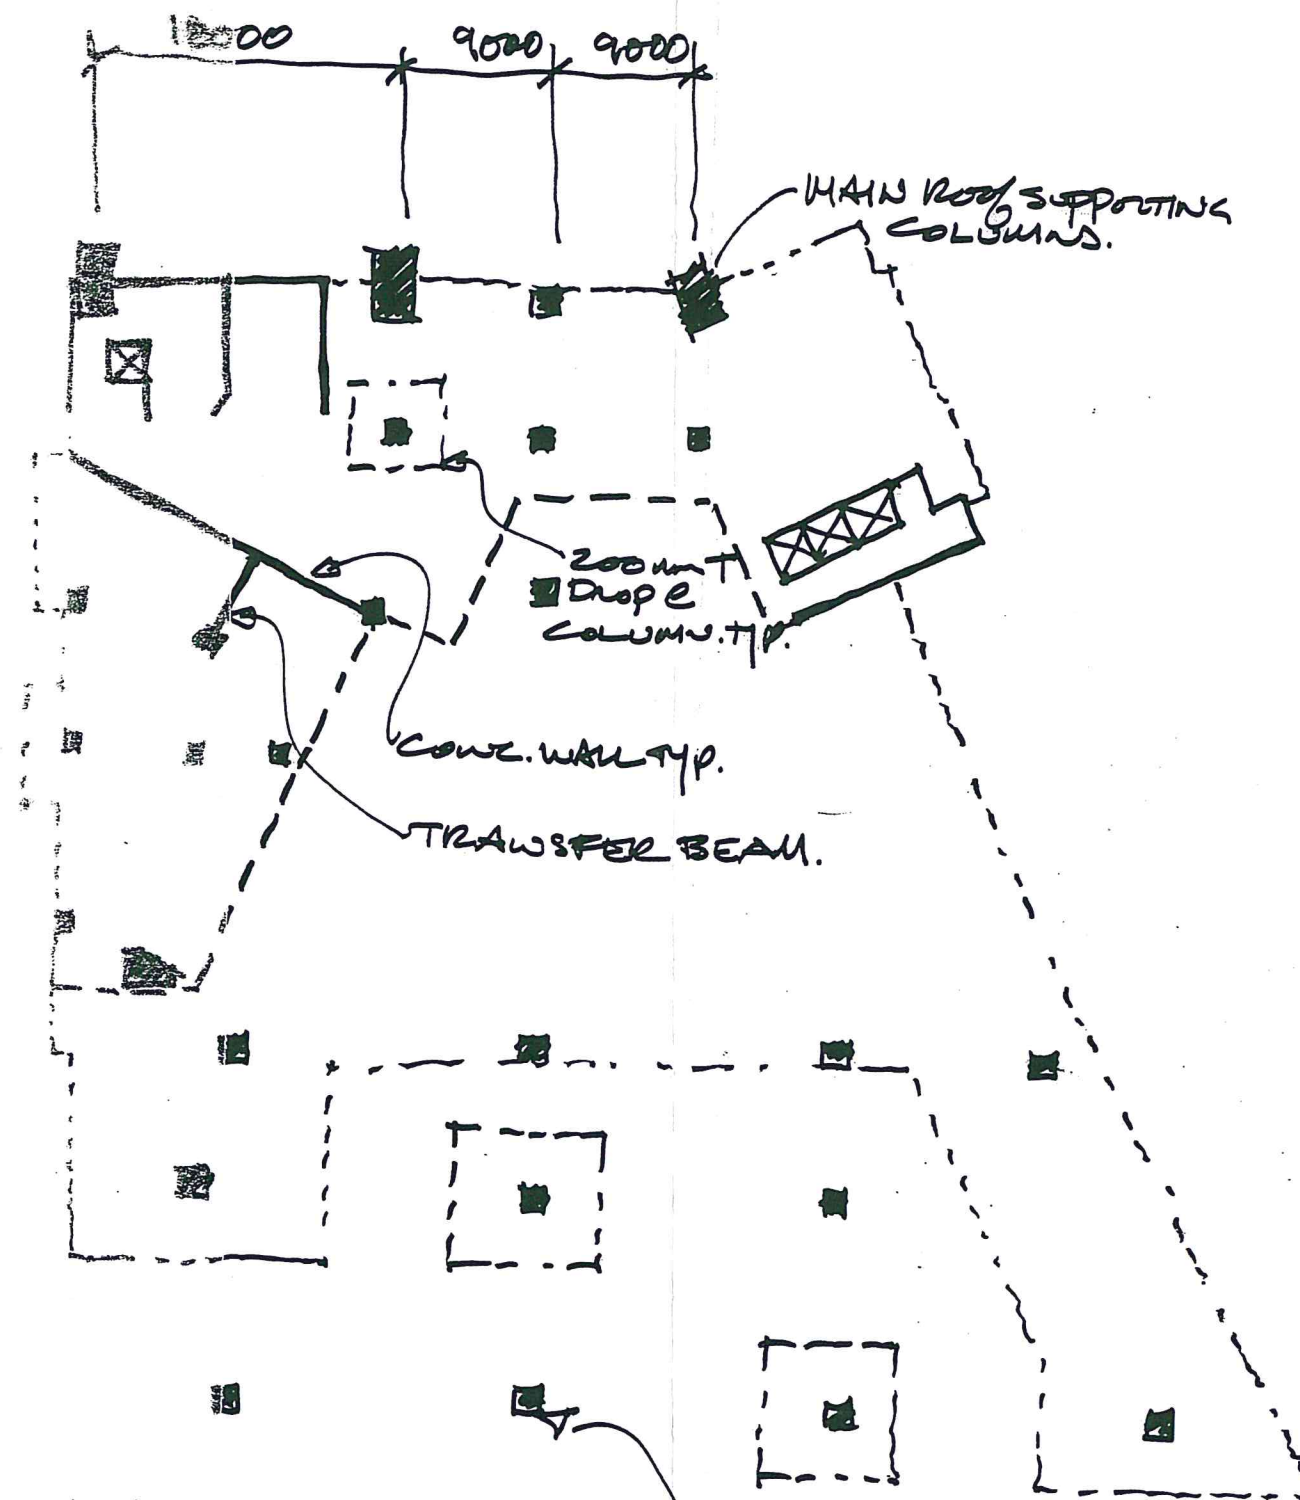 9000 9000
MAIN ROOF SUPPORTING
COLUMNS.
200mm T
Drop @
COLUMN. Typ.
CONC. WALL TYP.
TRANSFER BEAM.